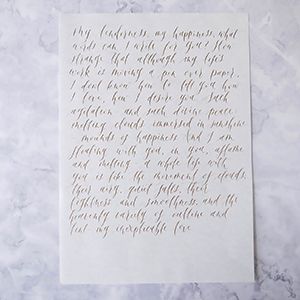 My tenderness, my happiness, what
words can I write for you? How
strange that although my life's
work is moving a pen over paper,
I don't know how to tell you how
I love, how I desire you. Such
agitation and such divine peace:
melting clouds immersed in sunshine
mounds of happiness. And I am
floating with you, in you, aflame
and melting a whole life with
you is like the movement of clouds,
their airy, quiet falls, their
lightness and smoothness, and the
heavenly variety of outline and
tint my inexplicable love